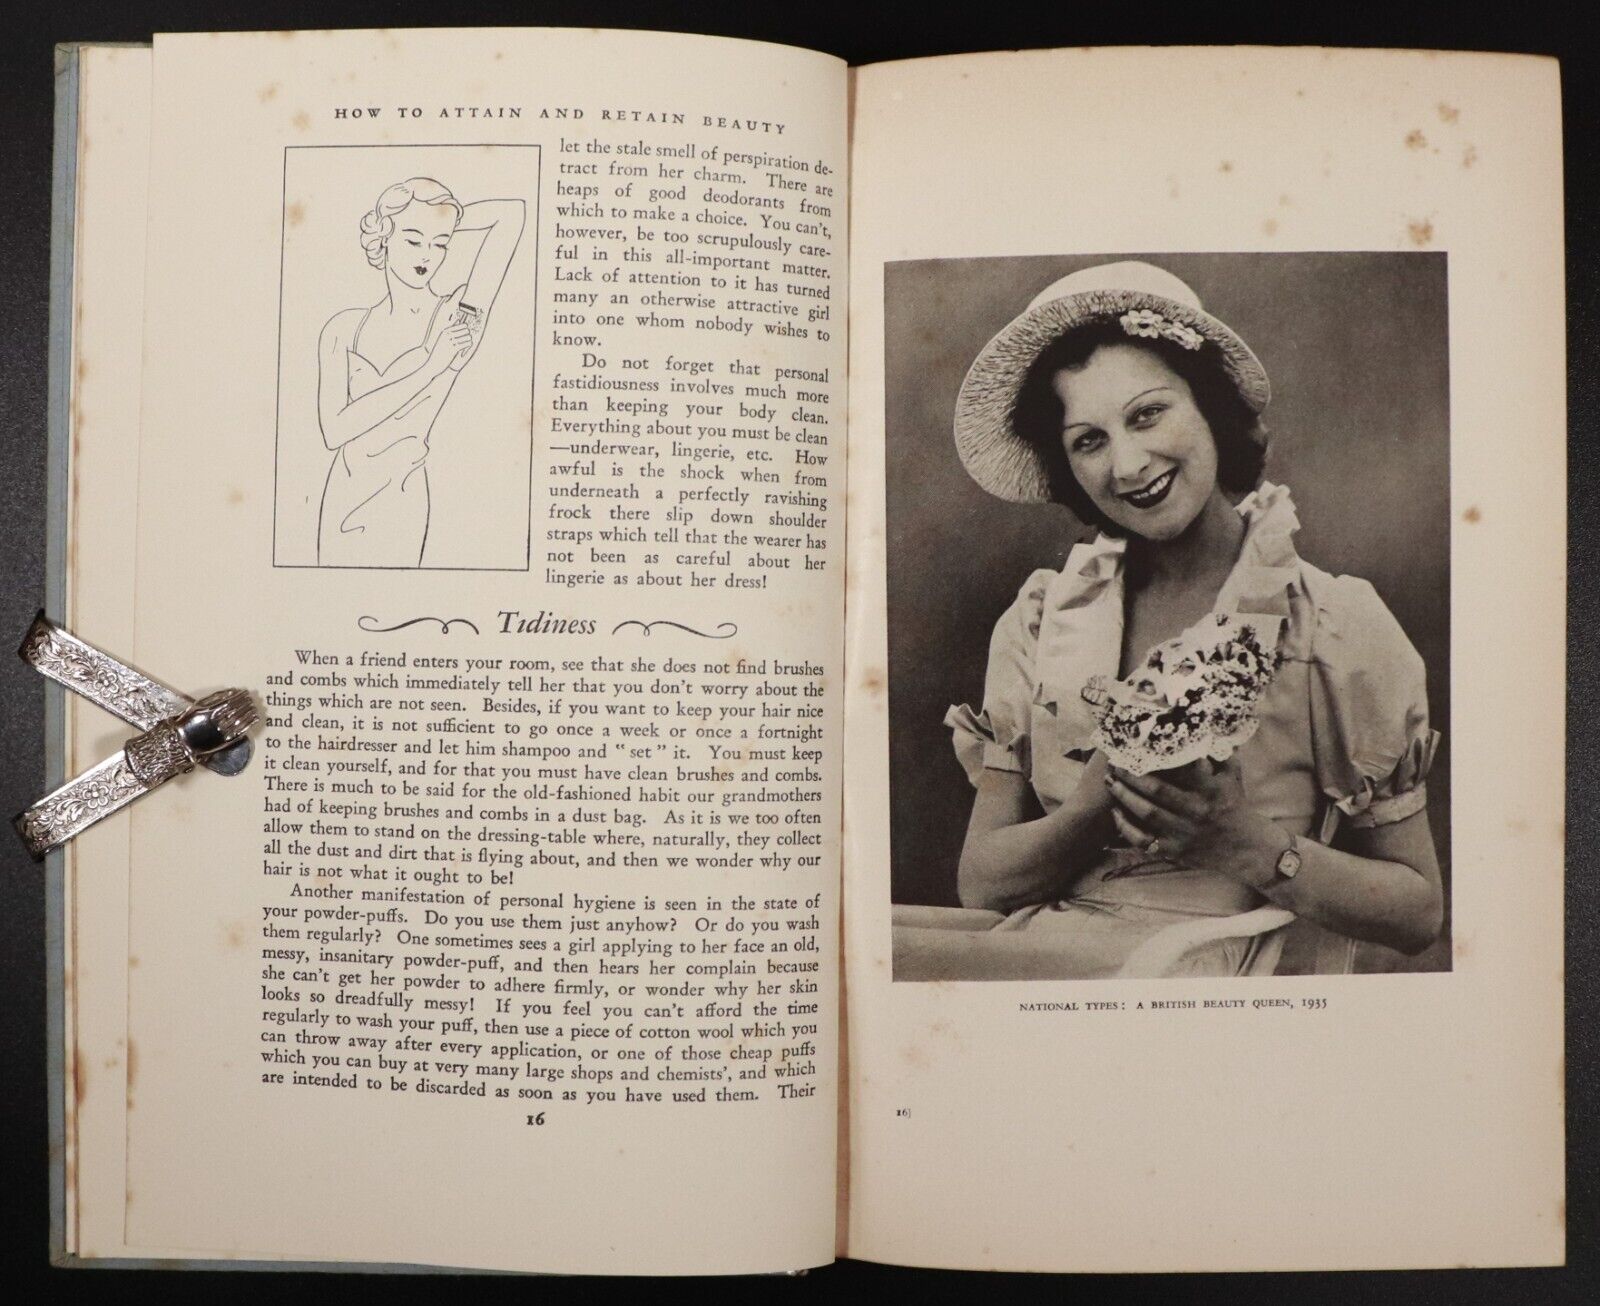 HOW TO ATTAIN AND RETAIN BEAUTY
let the stale smell of perspiration de-
tract from her charm. There are
heaps of good deodorants from
which to make a choice. You can't,
however, be too scrupulously care-
ful in this all-important matter.
Lack of attention to it has turned
many an otherwise attractive girl
into one whom nobody wishes to
know.
Do not forget that personal
fastidiousness involves much more
than keeping your body clean.
Everything about you must be clean
—underwear, lingerie, etc. How
awful is the shock when from
underneath a perfectly ravishing
frock there slip down shoulder
straps which tell that the wearer has
not been as careful about her
lingerie as about her dress!
Tidiness
When a friend enters your room, see that she does not find brushes
and combs which immediately tell her that you don't worry about the
things which are not seen. Besides, if you want to keep your hair nice
and clean, it is not sufficient to go once a week or once a fortnight
to the hairdresser and let him shampoo and “ set ” it. You must keep
it clean yourself, and for that you must have clean brushes and combs.
There is much to be said for the old-fashioned habit our grandmothers
had of keeping brushes and combs in a dust bag. As it is we too often
allow them to stand on the dressing-table where, naturally, they collect
all the dust and dirt that is flying about, and then we wonder why our
hair is not what it ought to be!
Another manifestation of personal hygiene is seen in the state of
your powder-puffs. Do you use them just anyhow? Or do you wash
them regularly? One sometimes sees a girl applying to her face an old,
messy, insanitary powder-puff, and then hears her complain because
she can't get her powder to adhere firmly, or wonder why her skin
looks so dreadfully messy! If you feel you can't afford the time
regularly to wash your puff, then use a piece of cotton wool which you
can throw away after every application, or one of those cheap puffs
which you can buy at very many large shops and chemists', and which
are intended to be discarded as soon as you have used them. Their
16
NATIONAL TYPES: A BRITISH BEAUTY QUEEN, 1935
16]